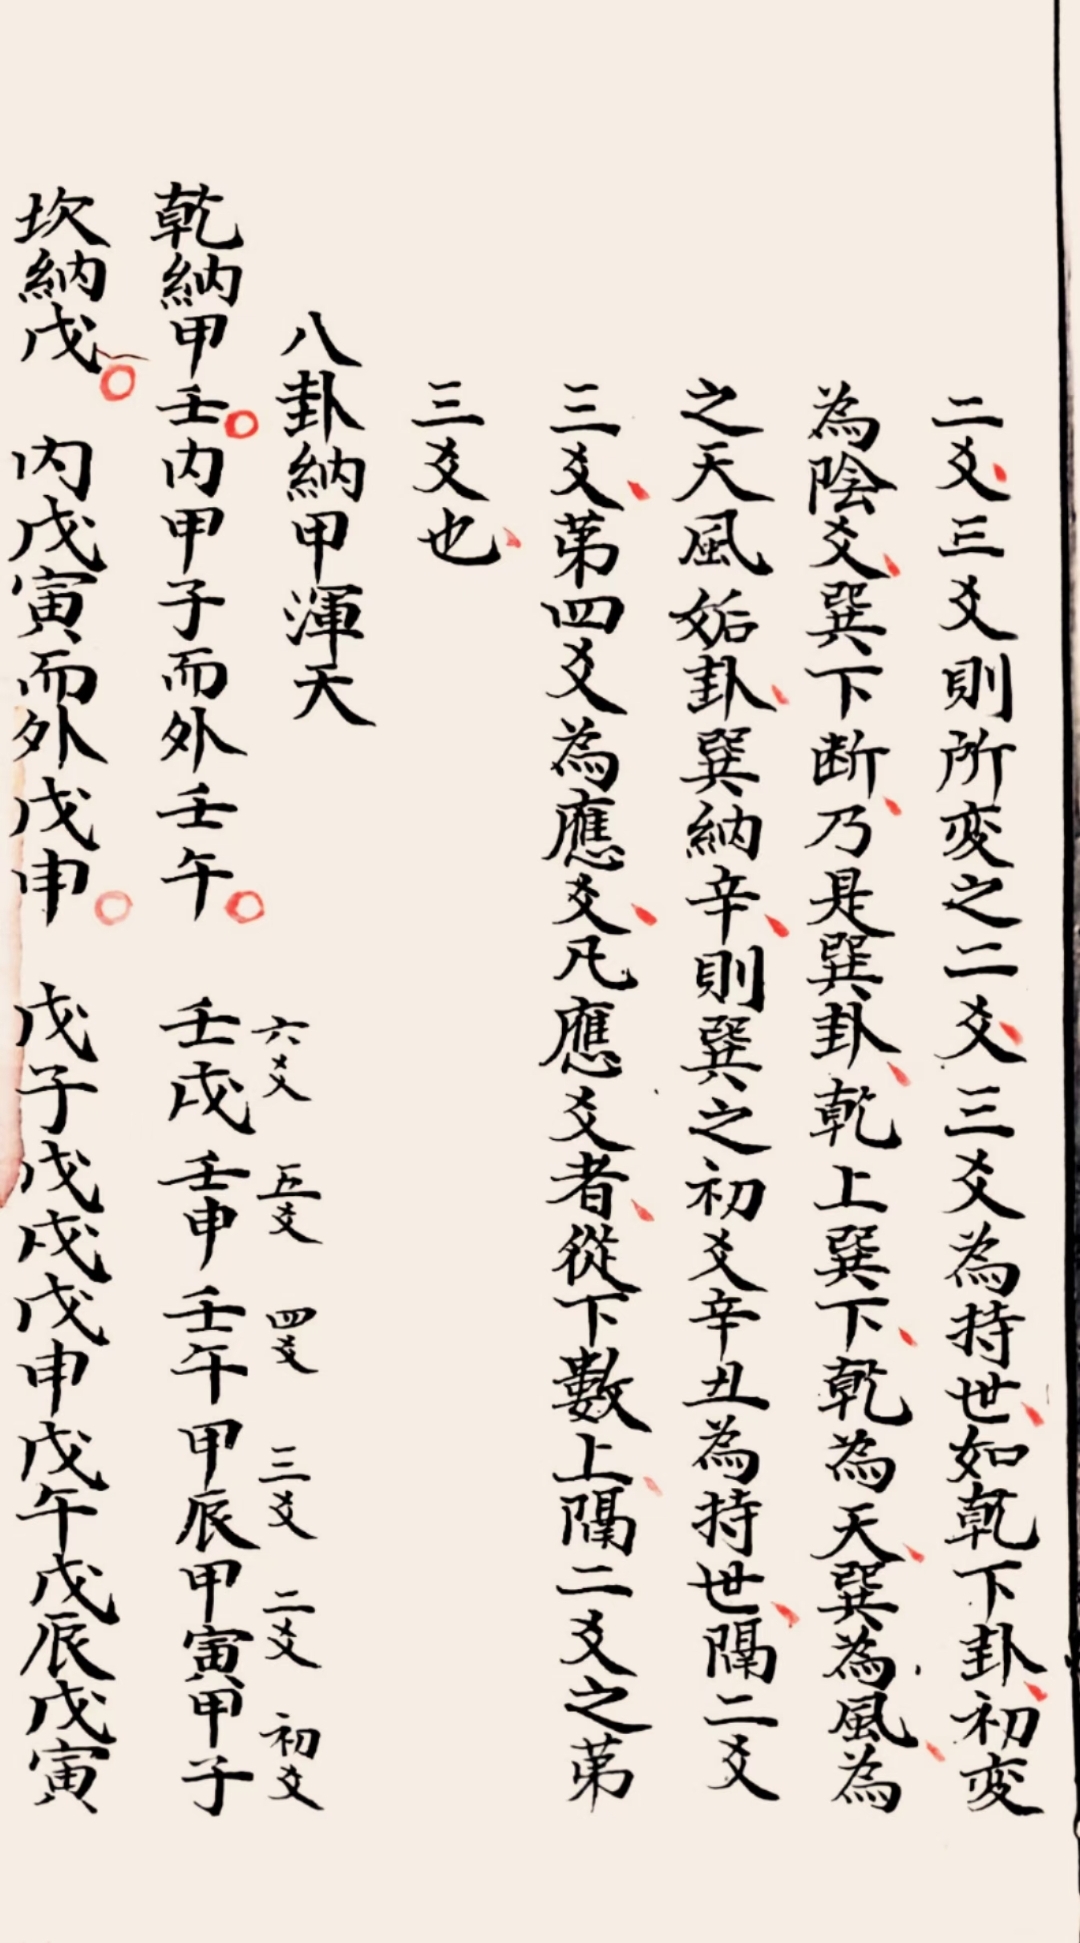 二爻三爻則所変之二爻三爻為持世如乾下卦初変
為陰爻巽下断乃是巽卦乾上巽下乾為天巽為風為
之天風姤卦巽納辛則巽之初爻辛丑為持世隔二爻
三爻苐四爻為應爻凡應爻者從下數上隔二爻之苐
三爻也
八卦納甲渾天
六爻 五爻 四爻 三爻 二爻 初爻
乾納甲壬内甲子而外壬午 壬戌壬申壬午甲辰甲寅甲子
坎納戊 内戊寅而外戊申 戊子戊戌戊申戊午戊辰戊寅